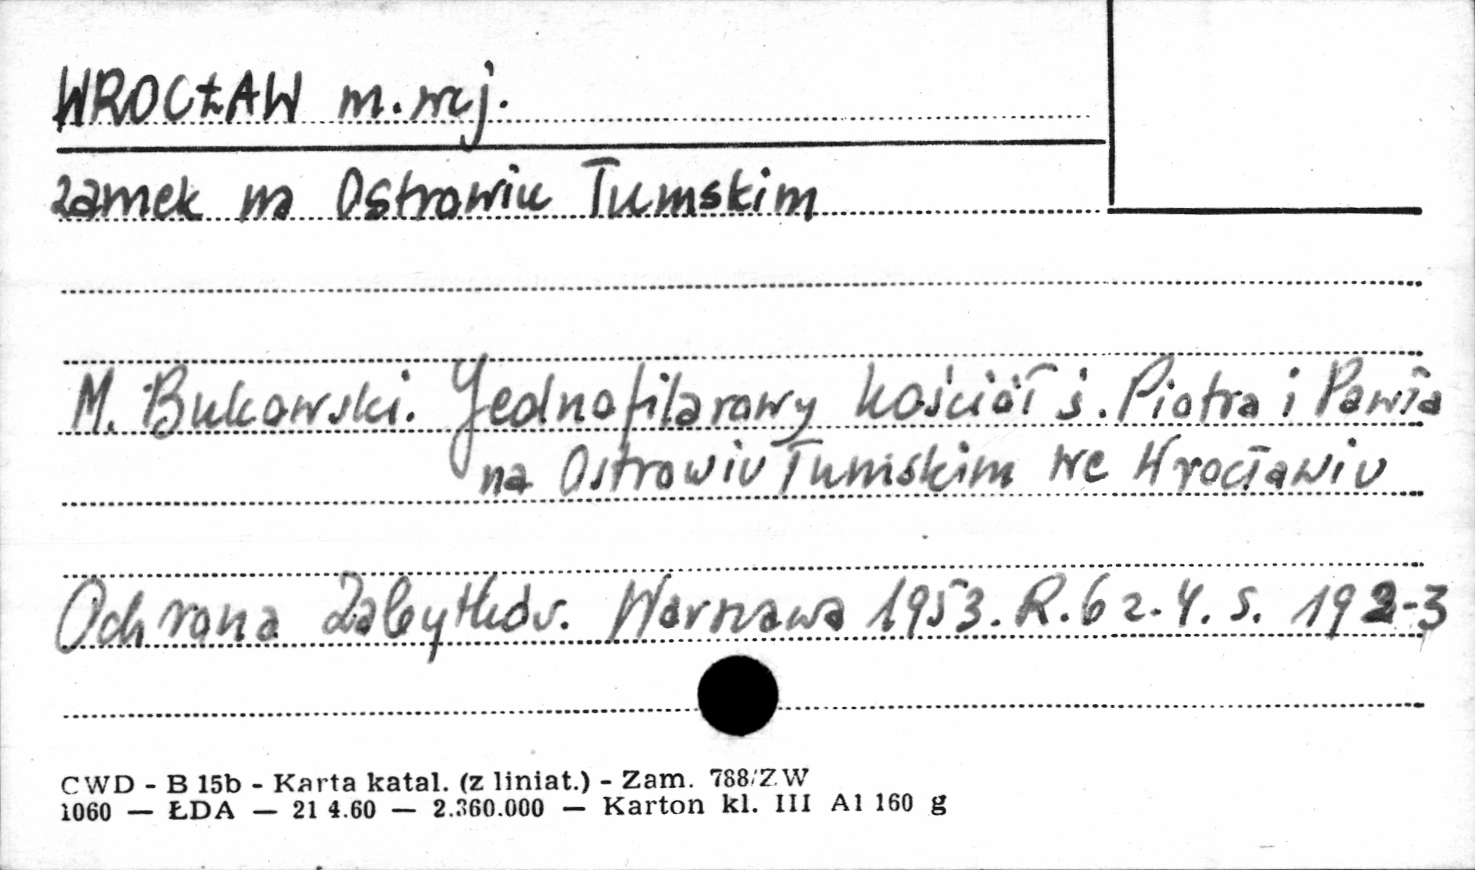 WROCŁAW m. woj.
zamek na Ostrowiu Tumskim
M. Bukowski. Jednofilarowy kościół ś. Piotra i Pawła
na Ostrowiu Tumskim we Wrocławiu
Ochrona Zabytków. Warszawa 1953. R. 6 z. 4. s. 192-3
CWD - B 15b - Karta katal. (z liniat.) - Zam. 788/ZW
1060 — ŁDA — 21 4.60 — 2.360.000 — Karton kl. III A1 160 g